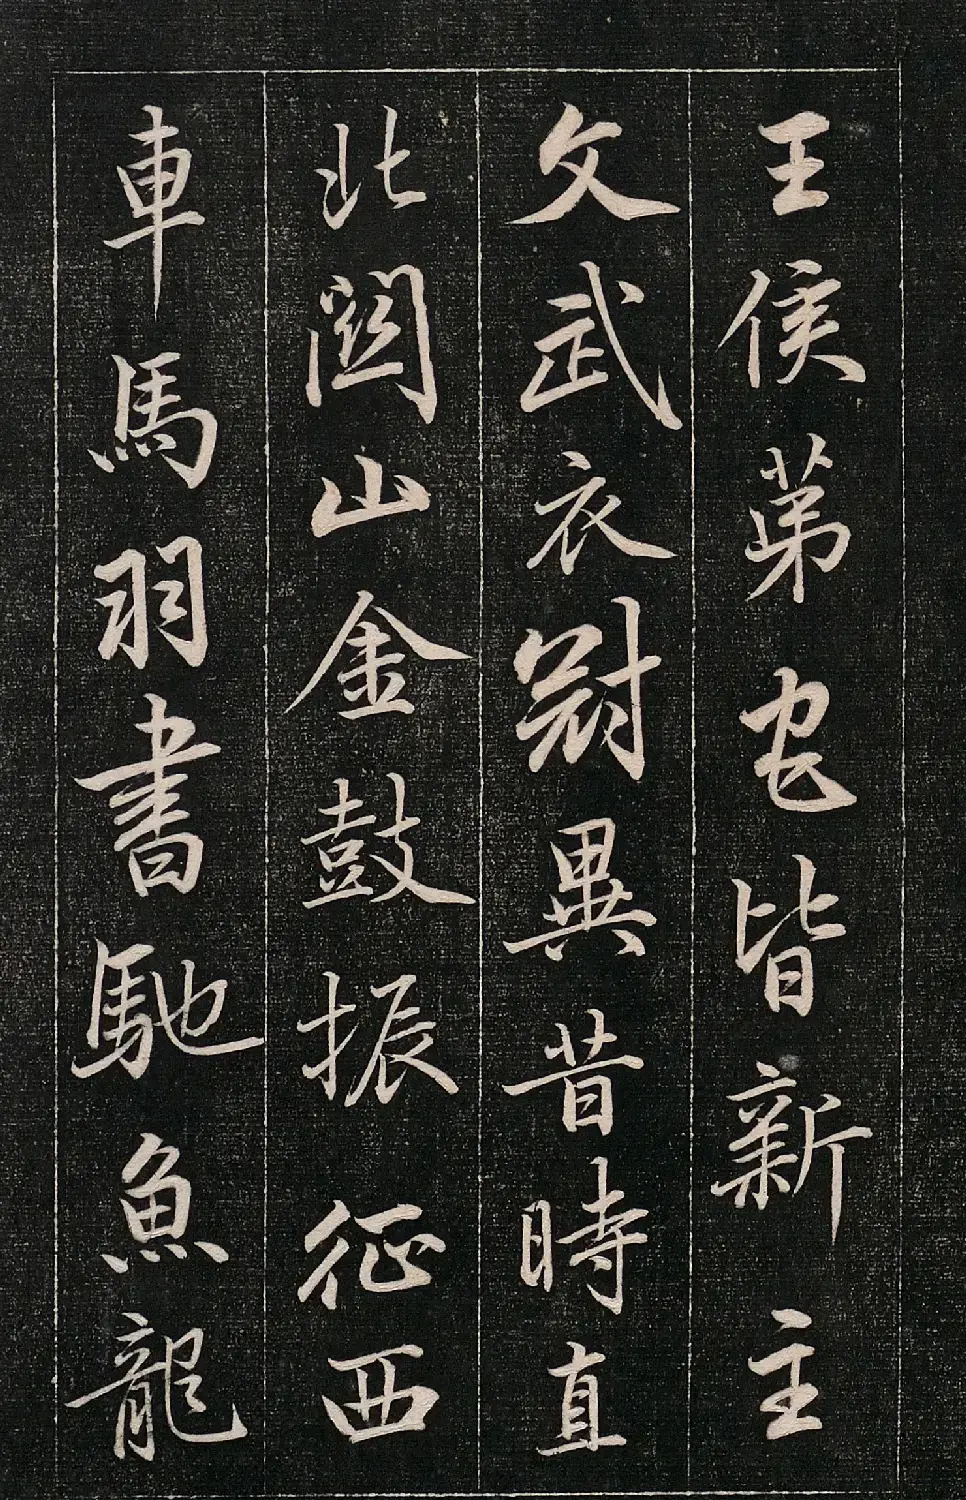 王侯苐宅皆新主
文武衣冠異昔時直
北關山金鼓振征西
車馬羽書馳魚龍